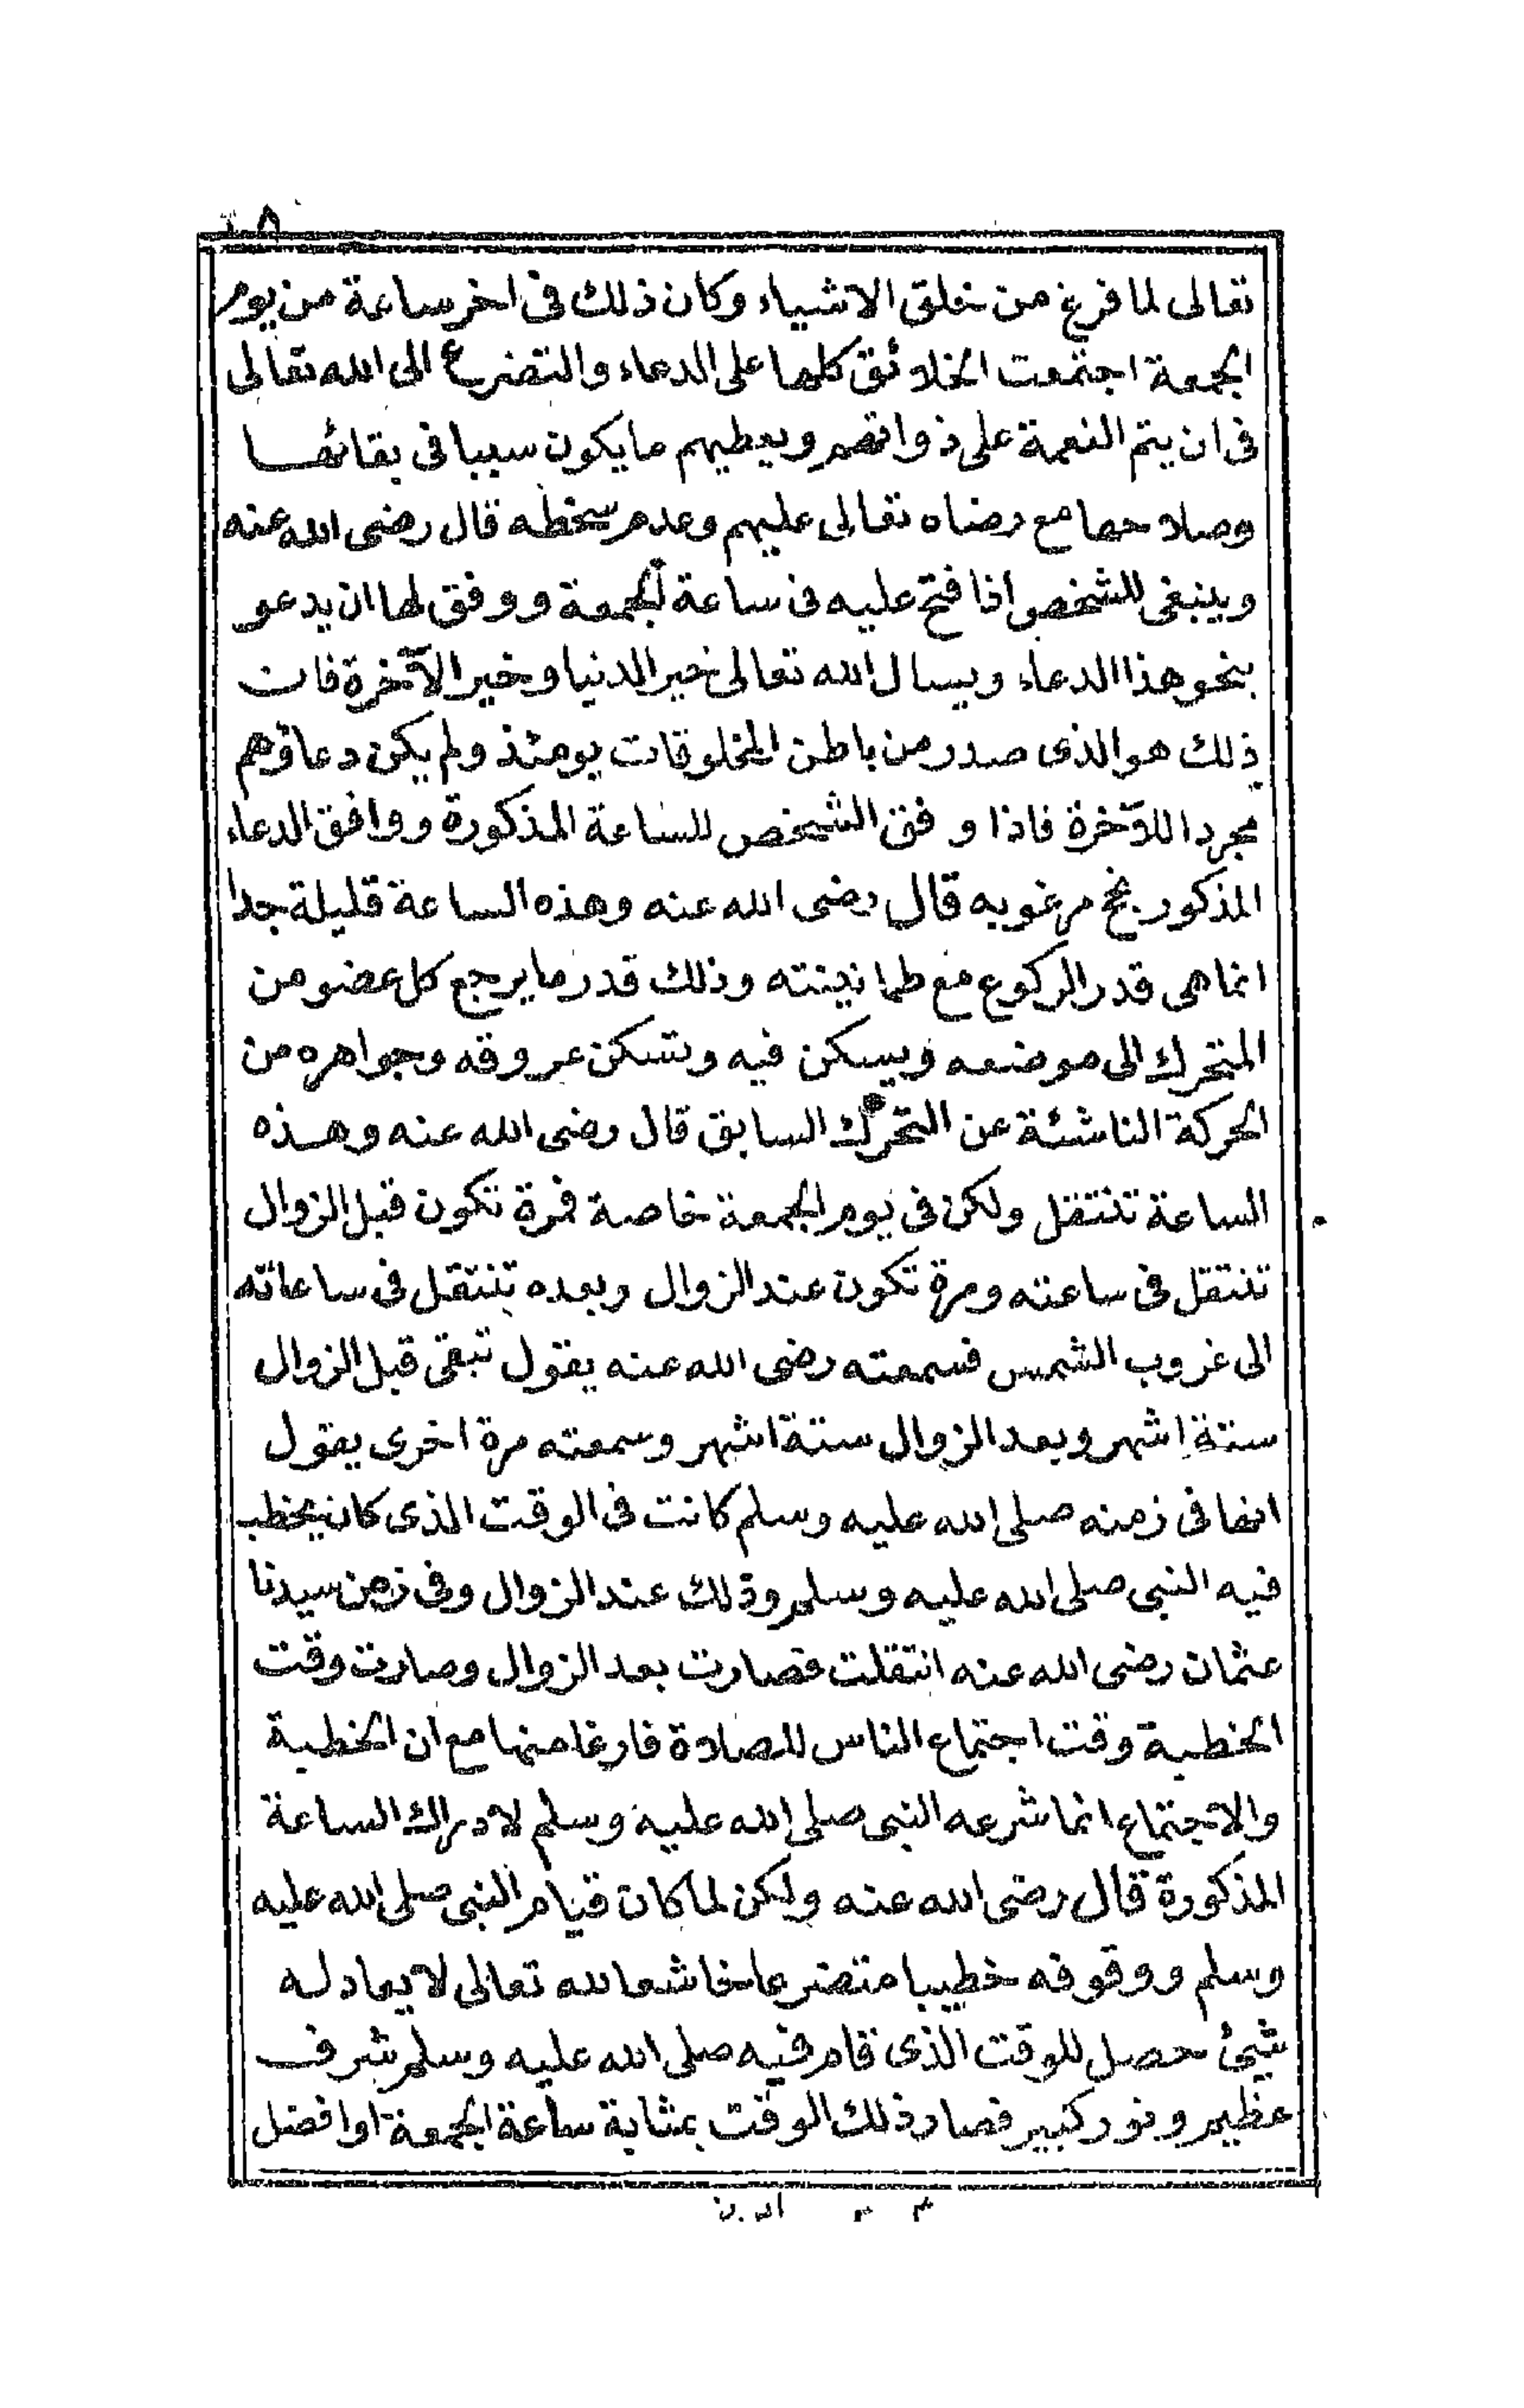 تعالى لما فرغ من خلق الاشياء وكان ذلك فى اخر ساعة من يوم
الجمعة اجتمعت الخلائق كلها على الدعاء والتضرع الى الله تعالى
فى ان يتم النعمة على ذواتهم ويعطيهم ما يكون سببا فى بقائها
وصلاحها مع رضاه تعالى عليهم وعدم سخطه قال رضى الله عنه
وينبغى للشخص اذا فتح عليه فى ساعة الجمعة ووفق لها ان يدعو
بنحو هذا الدعاء ويسال الله تعالى خير الدنيا وخير الآخرة فان
ذلك هو الذى صدر من باطن المخلوقات يومئذ ولم يكن دعاؤهم
مجردا للآخرة فاذا وفق الشخص للساعة المذكورة ووافق الدعاء
المذكور نجح مرغوبه قال رضى الله عنه وهذه الساعة قليلة جدا
انما هى قدر الركوع مع طمانينته وذلك قدر ما يرجع كل عضو من
المتحرك الى موضعه ويسكن فيه وتسكن عروقه وجواهره من
الحركة الناشئة عن التحرك السابق قال رضى الله عنه وهذه
الساعة تنتقل ولكن فى يوم الجمعة خاصة فمرة تكون قبل الزوال
تنتقل فى ساعته ومرة تكون عند الزوال وبعده تنتقل فى ساعاته
الى غروب الشمس فسمعته رضى الله عنه يقول تبقى قبل الزوال
ستة اشهر وبعد الزوال ستة اشهر وسمعته مرة اخرى يقول
انها فى زمنه صلى الله عليه وسلم كانت فى الوقت الذى كان يخطب
فيه النبى صلى الله عليه وسلم وذلك عند الزوال وفى زمن سيدنا
عثمان رضى الله عنه انتقلت فصارت بعد الزوال وصارت وقت
الخطبة وقت اجتماع الناس للصلاة فارغا منها مع ان الخطبة
والاجتماع انما شرعه النبى صلى الله عليه وسلم لادراك الساعة
المذكورة قال رضى الله عنه ولكن لما كان قيام النبى صلى الله عليه
وسلم ووقوفه خطيبا متضرعا خاشعا لله تعالى لا يعادله
شيئ حصل للوقت الذى قام فيه صلى الله عليه وسلم شرف
عظيم ونور كبير فصار ذلك الوقت بمثابة ساعة الجمعة او افضل